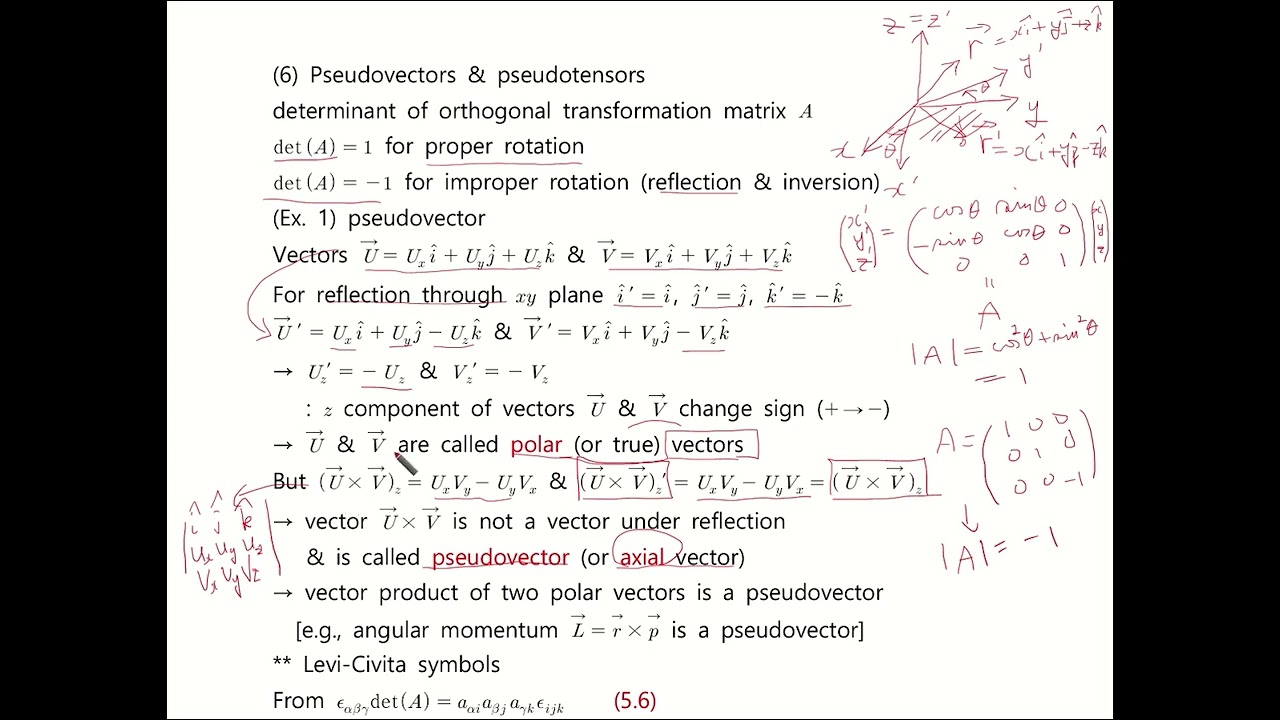 (6) Pseudovectors & pseudotensors
determinant of orthogonal transformation matrix A
det(A) = 1 for proper rotation
det(A) = −1 for improper rotation (reflection & inversion)
(Ex. 1) pseudovector
Vectors U⃗ = Uₓî + U_yĵ + U_zk̂ & V⃗ = Vₓî + V_yĵ + V_zk̂
For reflection through xy plane î′ = î, ĵ′ = ĵ, k̂′ = −k̂
U⃗′ = Uₓî + U_yĵ − U_zk̂ & V⃗′ = Vₓî + V_yĵ − V_zk̂
→ U_z′ = −U_z & V_z′ = −V_z
: z component of vectors U⃗ & V⃗ change sign (+→−)
→ U⃗ & V⃗ are called polar (or true) vectors
But (U⃗×V⃗)_z = UₓV_y − U_yVₓ & (U⃗×V⃗)_z′ = UₓV_y − U_yVₓ = (U⃗×V⃗)_z
→ vector U⃗×V⃗ is not a vector under reflection
& is called pseudovector (or axial vector)
→ vector product of two polar vectors is a pseudovector
[e.g., angular momentum L⃗ = r⃗×p⃗ is a pseudovector]
** Levi-Civita symbols
From ϵ_αβγ det(A) = a_αi a_βj a_γk ϵ_ijk (5.6)
z = z′
r⃗ = xî + yĵ + zk̂
y′
θ
y
x
θ
r⃗′ = xî + yĵ − zk̂
x′
x′ cosθ sinθ 0 x
y′ = −sinθ cosθ 0 y
z′ 0 0 1 z
"
A
|A| = cos²θ + sin²θ
= 1
1 0 0
A = 0 1 0
0 0 −1
↓
|A| = −1
î ĵ k̂
Uₓ U_y U_z
Vₓ V_y V_z